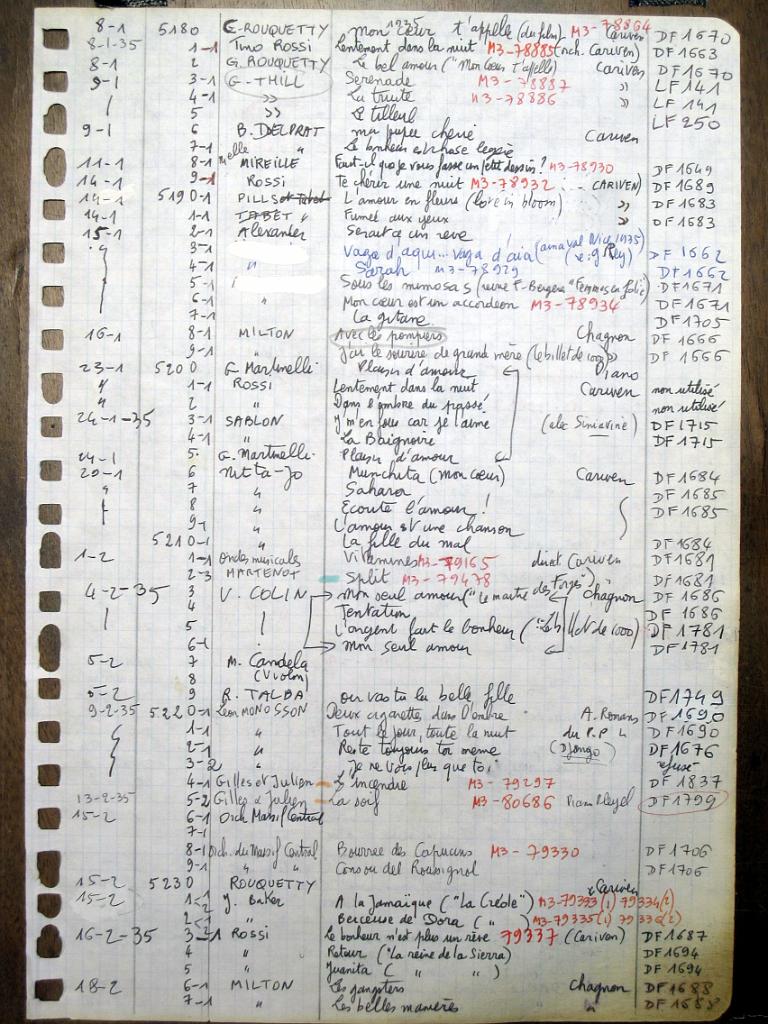 8-1 5180 G. ROUQUETTY mon cœur t'appelle (du film) M3-78864 Cariven DF 1670
8-1-35 1-1 Tino ROSSI Lentement dans la nuit M3-78885 (orch. Cariven) DF 1663
8-1 2 G. ROUQUETTY Le bel amour ("Mon cœur t'appelle) Cariven DF 1670
9-1 3-1 G. THILL Serenade M3-78887 " LF 141
4-1 " La truite M3-78886 " LF 141
5 " Le tilleul LF 250
9-1 6 B. DELPRAT ma poupée chérie Cariven
7-1 " Le bonheur est chose légère
11-1 8-1 Melle MIREILLE Faut-il que je vous fasse un petit dessin? M3-78930 DF 1649
14-1 9-1 ROSSI Te chérir une nuit M3-78932 CARIVEN) DF 1689
14-1 5190-1 PILLS et Tabet L'amour en fleurs (love in bloom) " DF 1683
14-1 1-1 TABET " Fumée aux yeux " DF 1683
15-1 2-1 Alexander Serait-ce un rêve
3-1 Vaga d'aqui... vaga d'aia (carnaval Nice 1935) DF 1662
4-1 " Sarah M3-78929 DF 1662
5-1 Sous les mimosas (revue F-Bergère "Femmes en folie) DF 1671
6-1 " Mon cœur est un accordeon M3-78934 DF 1671
7-1 La gitane DF 1705
16-1 8-1 MILTON Avec les pompiers Chagnon DF 1666
9-1 " J'ai le sourire de grand mère (le billet de 1000) " DF 1666
23-1 5200 G. Martinelli Plaisir d'amour piano
" 1-1 ROSSI Lentement dans la nuit Cariven non utilisé
" 2 " Dans l'ombre du passé non utilisé
24-1-35 3-1 SABLON J'm'en fous car je t'aime (alec Siniavine) DF 1715
4-1 " La Baignoire DF 1715
24-1 5 G. Martinelli Plaisir d'amour
20-1 6 Nitta-Jo Munchita (Mon cœur) Cariven DF 1684
" 7 " Sahara DF 1685
8 " Ecoute l'amour! DF 1685
9-1 " L'amour est une chanson
5210-1 " La fille du mal DF 1684
1-2 1-1 Ondes musicales Vitamines M3-79165 duet Cariven DF 1681
2-3 MARTENOT Split M3-79478 " DF 1681
4-2-35 3 V. COLIN Mon seul amour ("Le maitre des Forges") Chagnon DF 1686
4 Tentation DF 1686
5 L'argent fait le bonheur ("Le billet de 1000) DF 1781
6-1 mon seul amour DF 1781
5-2 7 M. Candela
8 (Violon)
5-2 9 R. TALBA ou vas tu la belle fille DF 1749
9-2-35 5220-1 Léon MONOSSON Deux cigarettes dans l'ombre A. Romans DF 1690
1-1 " Tout le jour, toute la nuit du P.P " DF 1690
2-1 " Reste toujours toi même (Django) DF 1676
3-2 " Je ne vois plus que toi refusé
4-1 Gilles et Julien L'incendie M3-79297 DF 1837
13-2-35 5-2 Gilles & Julien La soif M3-80686 Piano Pleyel DF 1799
15-2 6-1 Orch Massif Central
7-1
8-1 Orch. du Massif Central Bourree des Capucins M3-79330 DF 1706
9-1 " " Consou del Roussignol DF 1706
15-2 5230 ROUQUETTY Cariven
15-2 1-2 J. Baker A la Jamaïque ("La Créole") M3-79333(1) 79334(2)
2-2 " Berceuse de Dora ( " ) M3-79335(1) 79336(2)
16-2-35 3-1 ROSSI Le bonheur n'est plus un rêve 79337 (Cariven) DF 1687
4 " Retour ("La reine de la Sierra) DF 1694
5 " Juanita ( " " ) DF 1694
18-2 6-1 MILTON Les gangsters Chagnon DF 1688
7-1 " Les belles manières " DF 1688